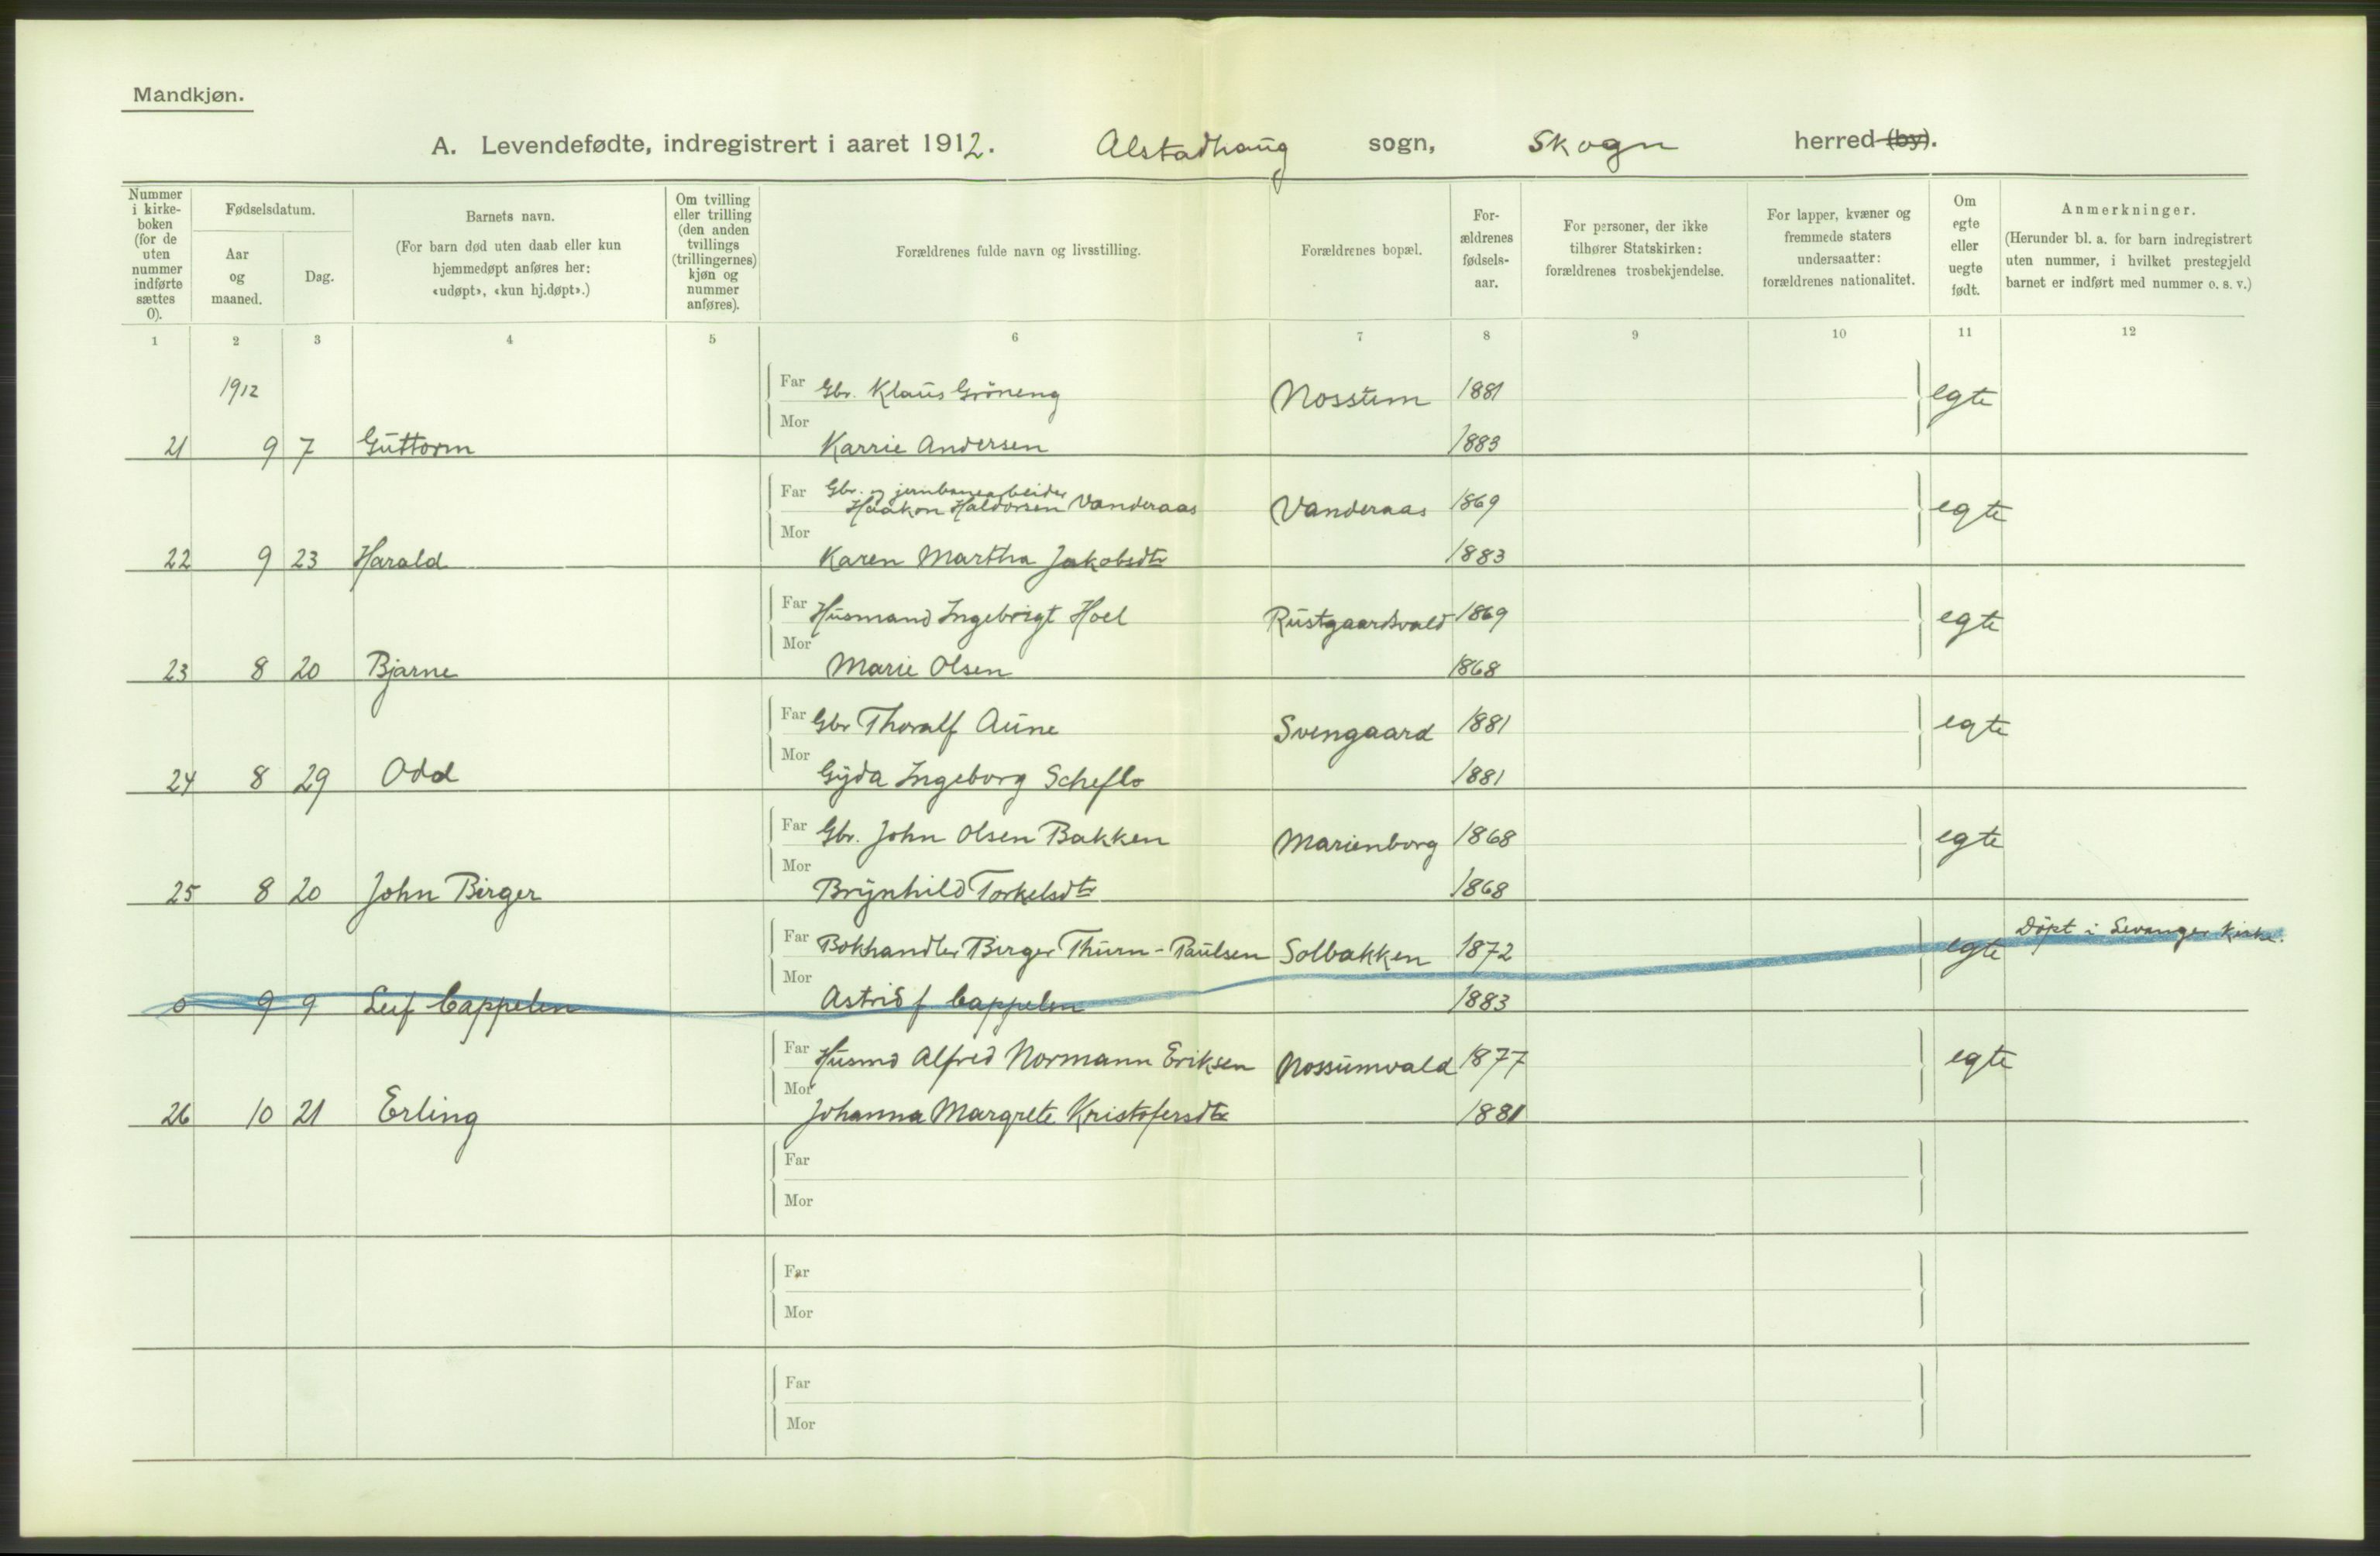 Mandkjøn.
A. Levendefødte, indregistrert i aaret 1912. Alstadhaug sogn, Skogn herred (by).
Nummer i kirke-boken (for de uten nummer indførte sættes 0).
Fødselsdatum.
Aar og maaned.
Dag.
Barnets navn.
(For barn død uten daab eller kun hjemmedøpt anføres her: «udøpt», «kun hj.døpt».)
Om tvilling eller trilling (den anden tvillings (trillingernes) kjøn og nummer anføres).
Forældrenes fulde navn og livsstilling.
Forældrenes bopæl.
For-ældrenes fødsels-aar.
For personer, der ikke tilhører Statskirken: forældrenes trosbekjendelse.
For lapper, kvæner og fremmede staters undersaatter: forældrenes nationalitet.
Om egte eller uegte født.
Anmerkninger.
(Herunder bl. a. for barn indregistrert uten nummer, i hvilket prestegjeld barnet er indført med nummer o. s. v.)
1 2 3 4 5 6 7 8 9 10 11 12
1912 Far Gbr. Klaus Gröneng Nossum 1881 egte
Mor
21 9 7 Guttorm Karrie Andersen 1883
Far Gbr. og jernbanearbeider
Haakon Haldorsen Vanderaas Vanderaas 1869 egte
Mor
22 9 23 Harald Karen Martha Jakobsdtr 1883
Far Husmand Ingebrigt Hoel Rustgaardsvald 1869 egte
Mor
23 8 20 Bjarne Marie Olsen 1868
Far Gbr Thoralf Aune Svengaard 1881 egte
Mor
24 8 29 Odd Gyda Ingeborg Scheflo 1881
Far Gbr. John Olsen Bakken Marienborg 1868 egte
Mor
25 8 20 John Birger Brynhild Torkelsdtr 1868
Far Bokhandler Birger Thurn-Paulsen Solbakken 1872 egte Döpt i Levanger Kirke.
Mor
0 9 9 Leif Cappelen Astrid f Cappelen 1883
Far Husmd Alfred Normann Eriksen Nossumvald 1877 egte
Mor
26 10 21 Erling Johanna Margrete Kristofersdtr 1881
Far
Mor
Far
Mor
Far
Mor